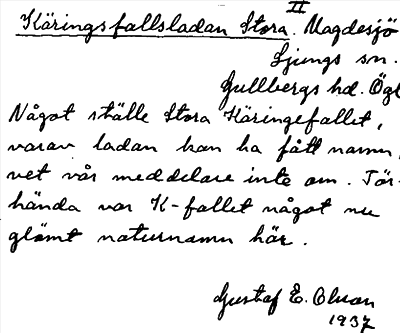 II
Käringsfallsladan Stora. Magdesjö
Ljungs sn.
Gullbergs hd. Ögl
Något ställe Stora Käringefallet,
varav ladan kan ha fått namn,
vet vår meddelare inte om. Tör-
hända var K-fallet något nu
glömt naturnamn här.
Gustaf E. Olson
1937